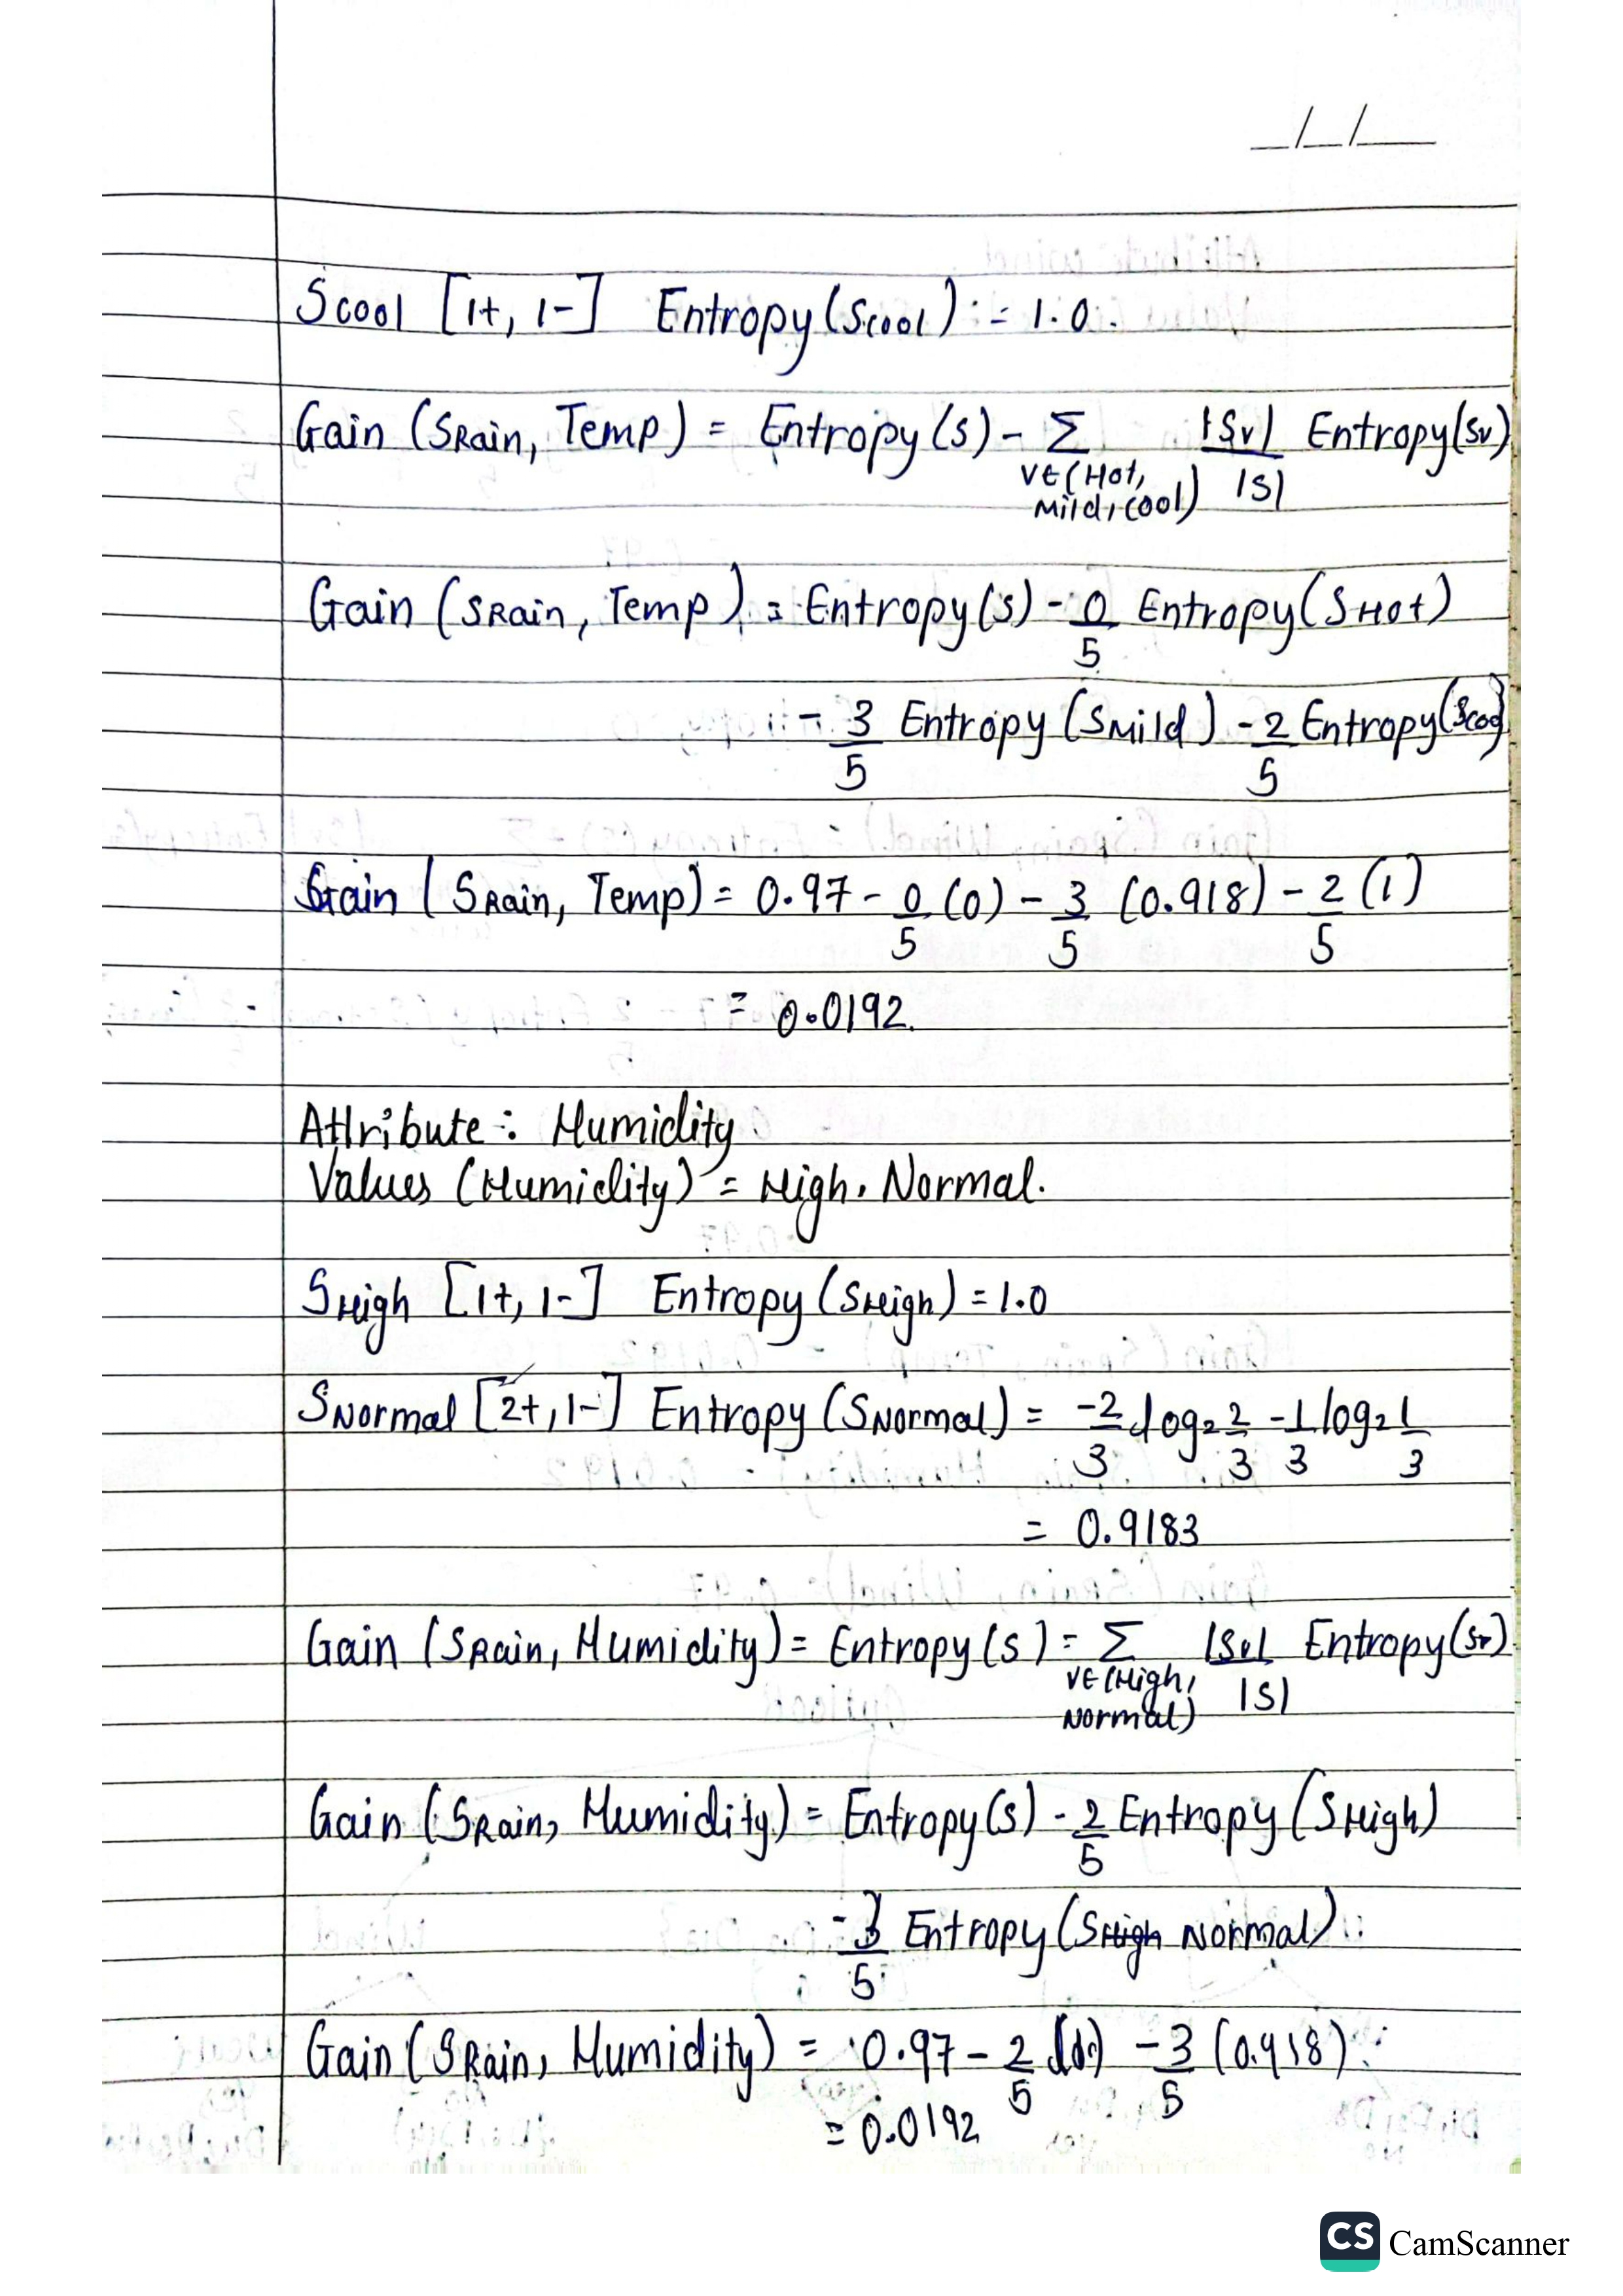 __/__/____
Scool [1+, 1-] Entropy (Scool) := 1.0.
Gain (SRain, Temp) = Entropy (S) - Σ |Sv| Entropy(Sv)
v∈(Hot, |S|
Mild, Cool)
Gain (SRain, Temp) = Entropy (S) - 0/5 Entropy (SHot)
- 3/5 Entropy (SMild) - 2/5 Entropy (Scool)
Gain (SRain, Temp) = 0.97 - 0/5 (0) - 3/5 (0.918) - 2/5 (1)
= 0.0192.
Attribute : Humidity
Values (Humidity) = High, Normal.
SHigh [1+, 1-] Entropy (SHigh) = 1.0
SNormal [2+, 1-] Entropy (SNormal) = -2/3 log2 2/3 - 1/3 log2 1/3
= 0.9183
Gain (SRain, Humidity) = Entropy (S) = Σ |Sv| Entropy (Sv)
v∈(High, |S|
Normal)
Gain (SRain, Humidity) = Entropy (S) - 2/5 Entropy (SHigh)
- 3/5 Entropy (SHigh Normal)
Gain (SRain, Humidity) = 0.97 - 2/5 - 3/5 (0.918)
= 0.0192
CS CamScanner